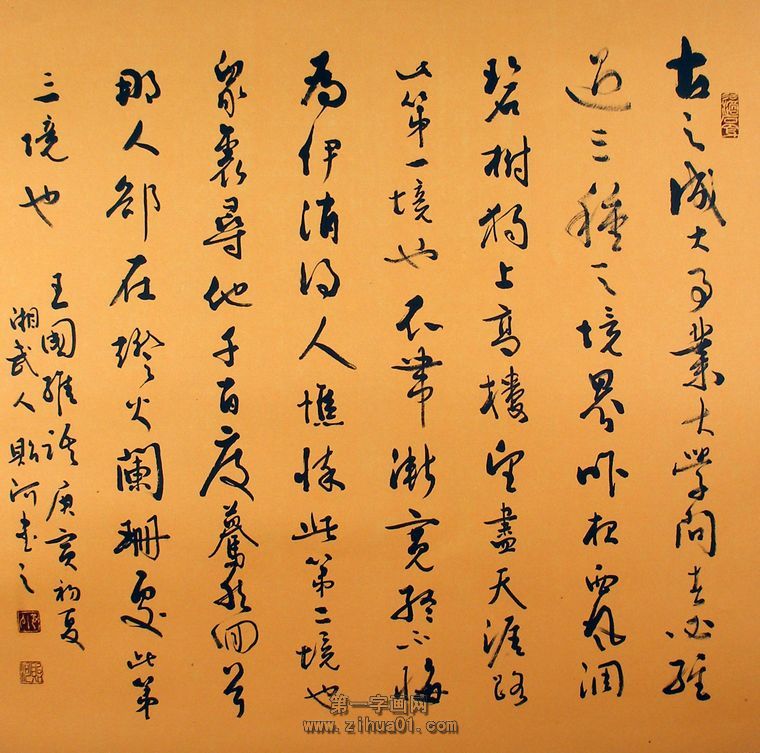 古之成大事業大學問者必經
過三種之境界昨夜西風凋
碧樹獨上高樓望盡天涯路
此第一境也衣帶漸寬終不悔
為伊消得人憔悴此第二境也
眾裏尋他千百度驀然回首
那人卻在燈火闌珊處此第
三境也
王國維語庚寅初夏
湘武人貽河書之
第一字画网
www.zihua01.com